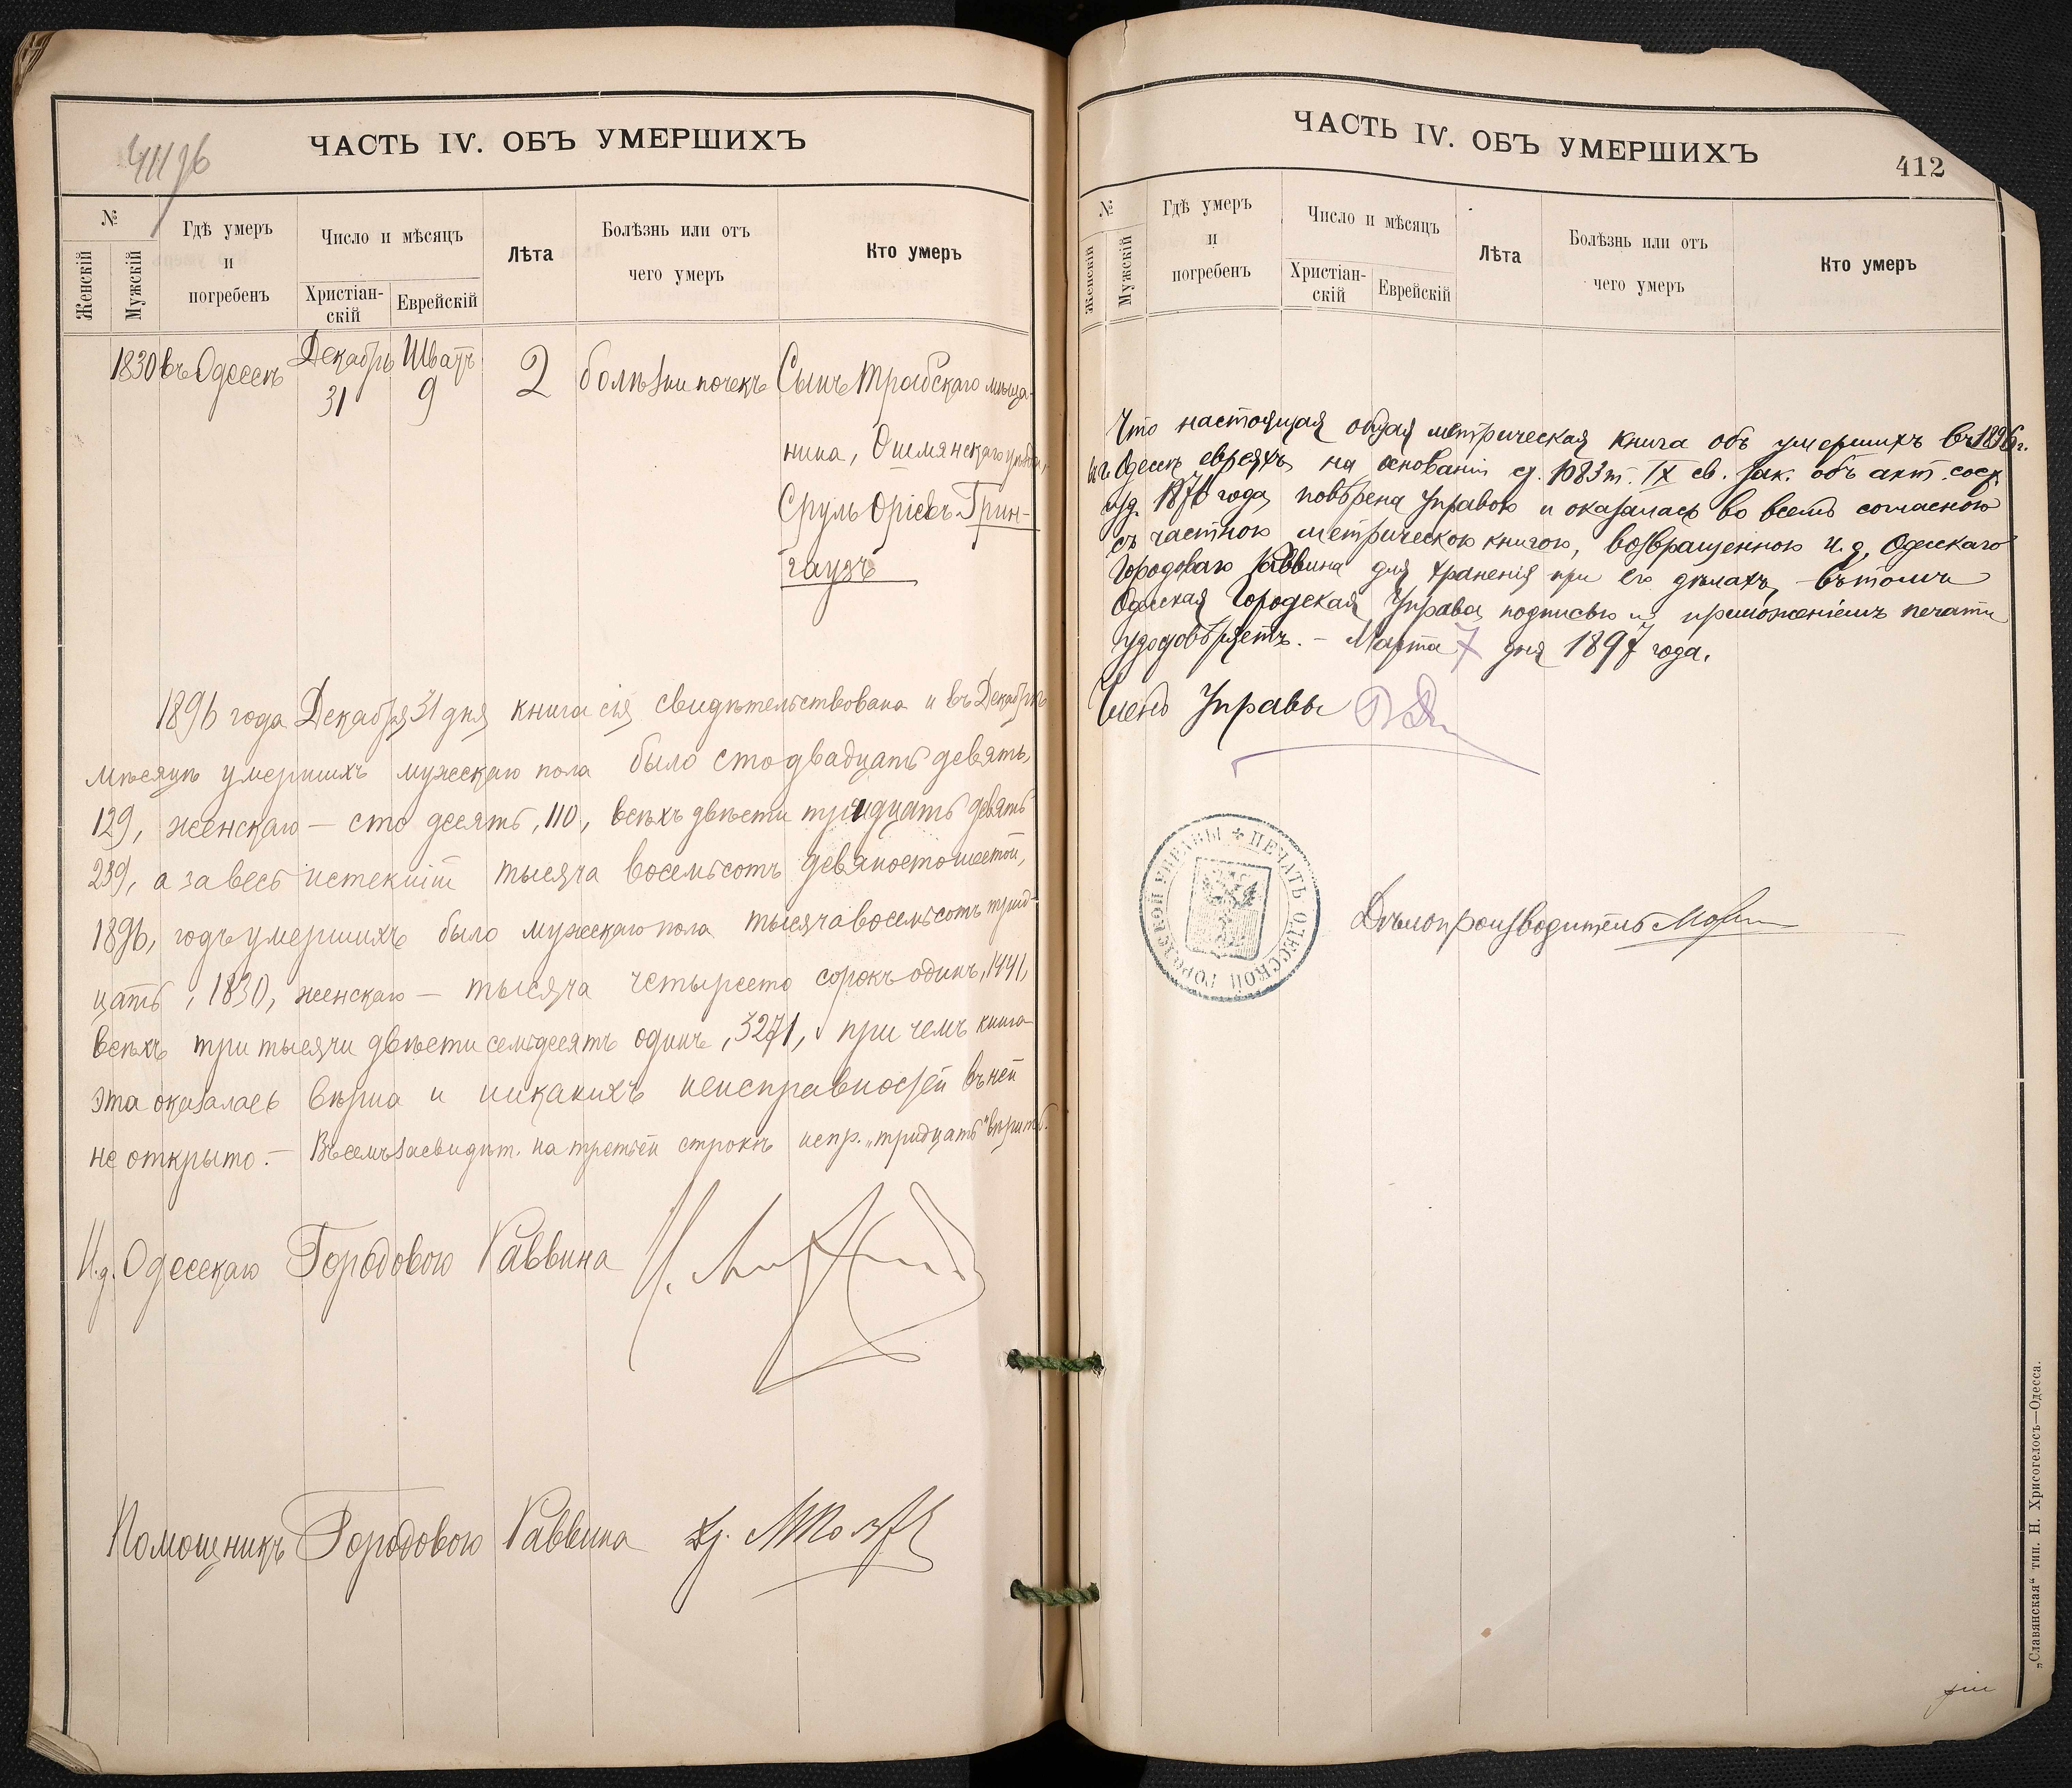 41196
ЧАСТЬ IV. ОБЪ УМЕРШИХЪ
№
Женскій
Мужскій
Гдѣ умеръ
и
погребенъ
Число и мѣсяцъ
Христіан-
скій
Еврейскій
Лѣта
Болѣзнь или отъ
чего умеръ
Кто умеръ
1830 въ Одессѣ Декабрь 31 Шватъ 9 2 болѣзни почекъ Сынъ Трабскаго мѣща-
нина, Ошмянскаго уѣзда,
Сруль Оріевъ Грин-
гаузъ
1896 года Декабря 31 дня книга сія свидѣтельствована и въ Декабрѣ
мѣсяцѣ умершихъ мужескаго пола было сто двадцать девять,
129, женскаго — сто десять, 110, всѣхъ двѣсти тридцать девять
239, а за весь истекшій тысяча восемьсотъ девяностошестой,
1896, годъ умершихъ было мужескаго пола тысяча восемьсотъ трид-
цать, 1830, женскаго — тысяча четыреста сорокъ одинъ, 1441,
всѣхъ три тысячи двѣсти семьдесятъ одинъ, 3271, при чемъ книга
эта оказалась вѣрна и никакихъ неисправностей въ ней
не открыто. — Въ семъ засвидѣт. на третьей строкѣ испр. „тридцать" вѣрить.
И. д. Одесскаго Городового Раввина
Помощникъ Городового Раввина
ЧАСТЬ IV. ОБЪ УМЕРШИХЪ
412
№
Женскій
Мужскій
Гдѣ умеръ
и
погребенъ
Число и мѣсяцъ
Христіан-
скій
Еврейскій
Лѣта
Болѣзнь или отъ
чего умеръ
Кто умеръ
Что настоящая общая метрическая книга объ умершихъ въ 1896 г.
въ Одессѣ евреяхъ на основаніи ст. 1083 т. IX св. зак. объ акт. сост.
изд. 1876 года, повѣрена Управою и оказалась во всемъ согласною
съ частною метрическою книгою, возвращенною И. д. Одесскаго
Городоваго Раввина для храненія при его дѣлахъ, — въ томъ
Одесская Городская Управа подписью и приложеніемъ печати
удостовѣряетъ. — Марта 7 дня 1897 года.
Членъ Управы
ПЕЧАТЬ ОДЕССКОЙ ГОРОДСКОЙ УПРАВЫ
Дѣлопроизводитель
„Славянская" тип. Н. Хрисогелосъ—Одесса.